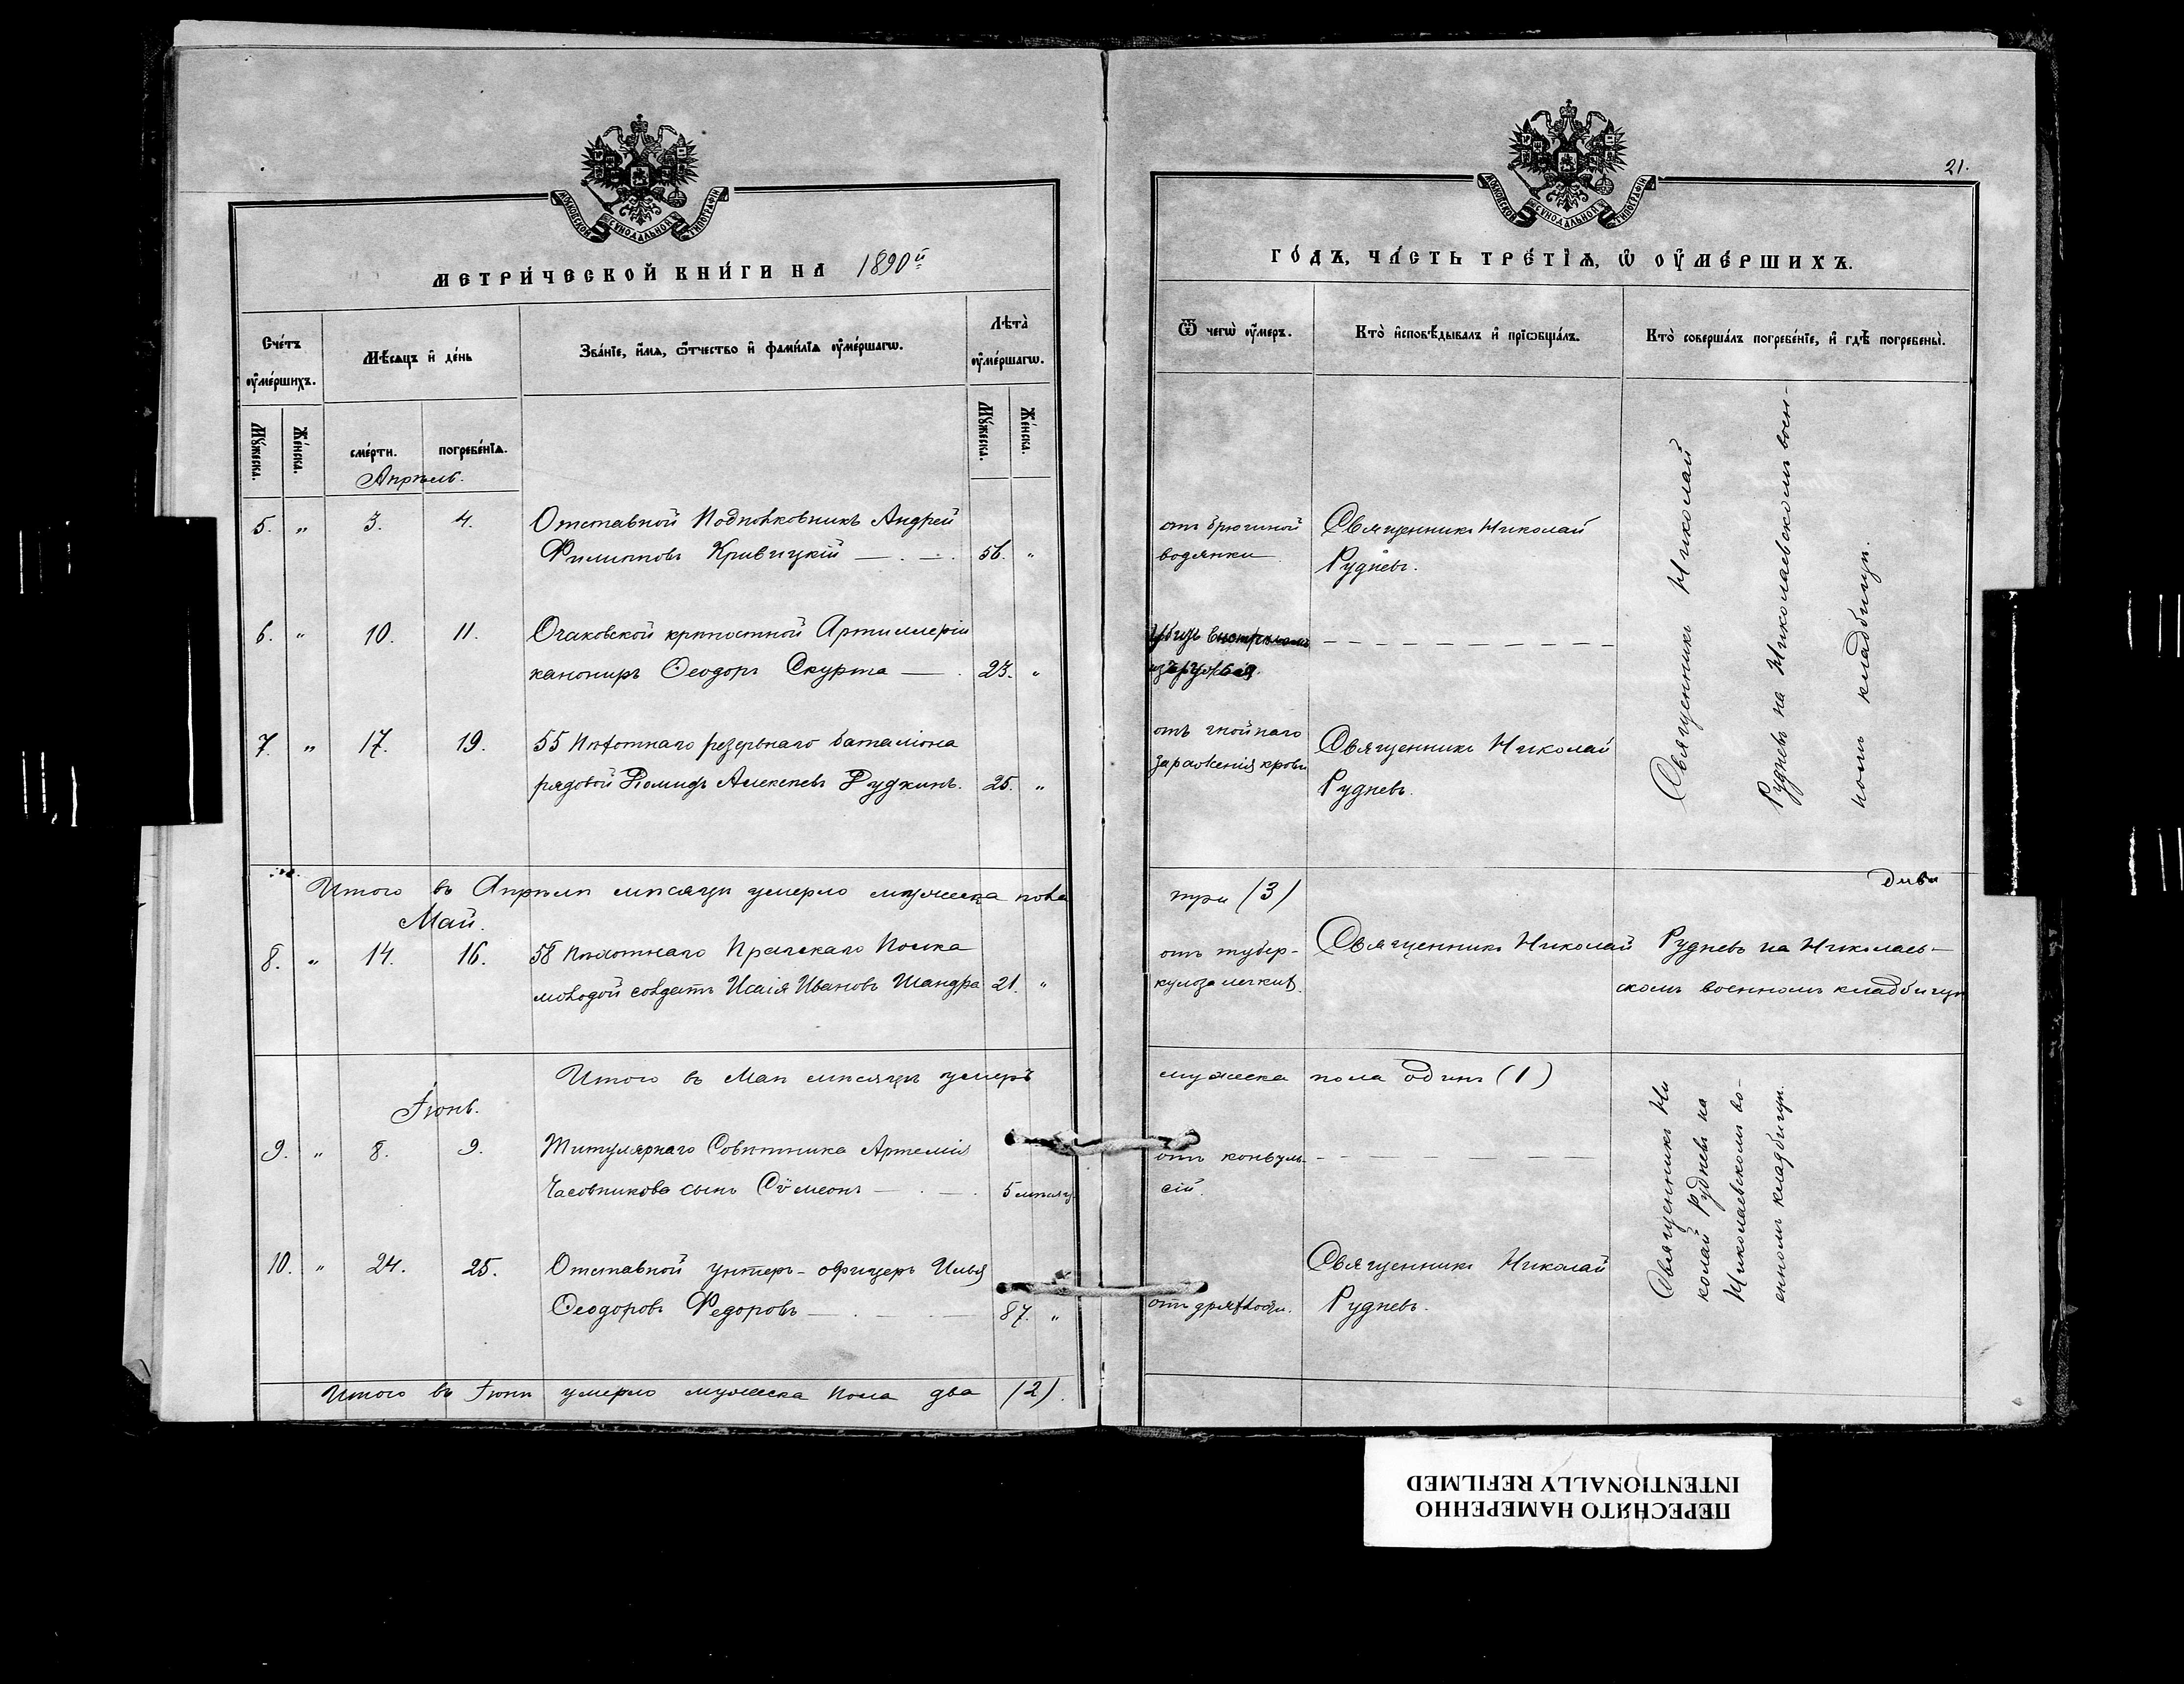 МОСКОВСКОЙ СѴНОДАЛЬНОЙ ТИПОГРАФІИ
МЕТРИ́ЧЕСКОЙ КНИ́ГИ НА 1890й
Сче́тъ оу҆ме́ршихъ.
Мѣ́сѧцъ и҆ де́нь
Зва́нїе, и҆́мѧ, ѻ҆́тчество и҆ фамилїѧ оу҆ме́ршагѡ.
Лѣта̀ оу҆ме́ршагѡ.
Мꙋ́жеска.
Же́нска.
сме́рти.
погребе́нїѧ.
Мꙋ́жеска.
Же́нска.
Апрѣль.
5. " 3. 4. Отставной Подполковникъ Андрей
Филипповъ Кривицкій — . — . 56. "
6. " 10. 11. Очаковской крѣпостной Артиллеріи
канониръ Ѳеодоръ Скурта — . 23. "
7. " 17. 19. 55 Пѣхотнаго резервнаго баталіона
рядовой Алексѣевъ Рудкинъ. 25. "
Итого въ Апрѣлѣ мѣсяцѣ умерло мужеска пола
Май.
8. " 14. 16. 58 Пѣхотнаго Прагскаго Полка
молодой солдатъ Исаія Ивановъ Шандра 21. "
Итого въ Маѣ мѣсяцѣ умеръ
Іюнь.
9. " 8. 9. Титулярнаго Совѣтника Артемія
Часовникова сынъ Сѵмеонъ — . — . 5 мѣсяц.
10. " 24. 25. Отставной унтеръ-офицеръ Илья
Ѳеодоровъ Федоровъ — . — . — 87. "
Итого въ Іюнѣ умерло мужеска пола два (2).
21.
МОСКОВСКОЙ СѴНОДАЛЬНОЙ ТИПОГРАФІИ
ГО́ДЪ, ЧА́СТЬ ТРЕ́ТЇѦ, Ѡ҆ ОУ҆МЕ́РШИХЪ.
Ѿ чегѡ̀ оу҆́меръ.
Кто̀ и҆сповѣ́дывалъ и҆ прїѡбща́лъ.
Кто̀ соверша́лъ погребе́нїе, и҆ гдѣ̀ погребены̀.
отъ брюшной
водянки
Священникъ Николай
Рудневъ.
убитъ выстрѣломъ
изъ ружья.
— — — — — — — —
отъ гнойнаго
зараженія крови
Священникъ Николай
Рудневъ.
Священникъ Николай
Рудневъ на Николаевскомъ воен-
номъ кладбищѣ.
три (3)
отъ тубер-
кулоза легкихъ.
Священникъ Николай Рудневъ на Николаев-
скомъ военномъ кладбищѣ
мужеска пола одинъ (1)
отъ конвуль-
сій.
— — — — — —
отъ дряхлости.
Священникъ Николай
Рудневъ.
Священникъ Ни
колай Рудневъ на
Николаевскомъ во-
енномъ кладбищѣ.
ПЕРЕСНЯТО НАМЕРЕННО
INTENTIONALLY REFILMED